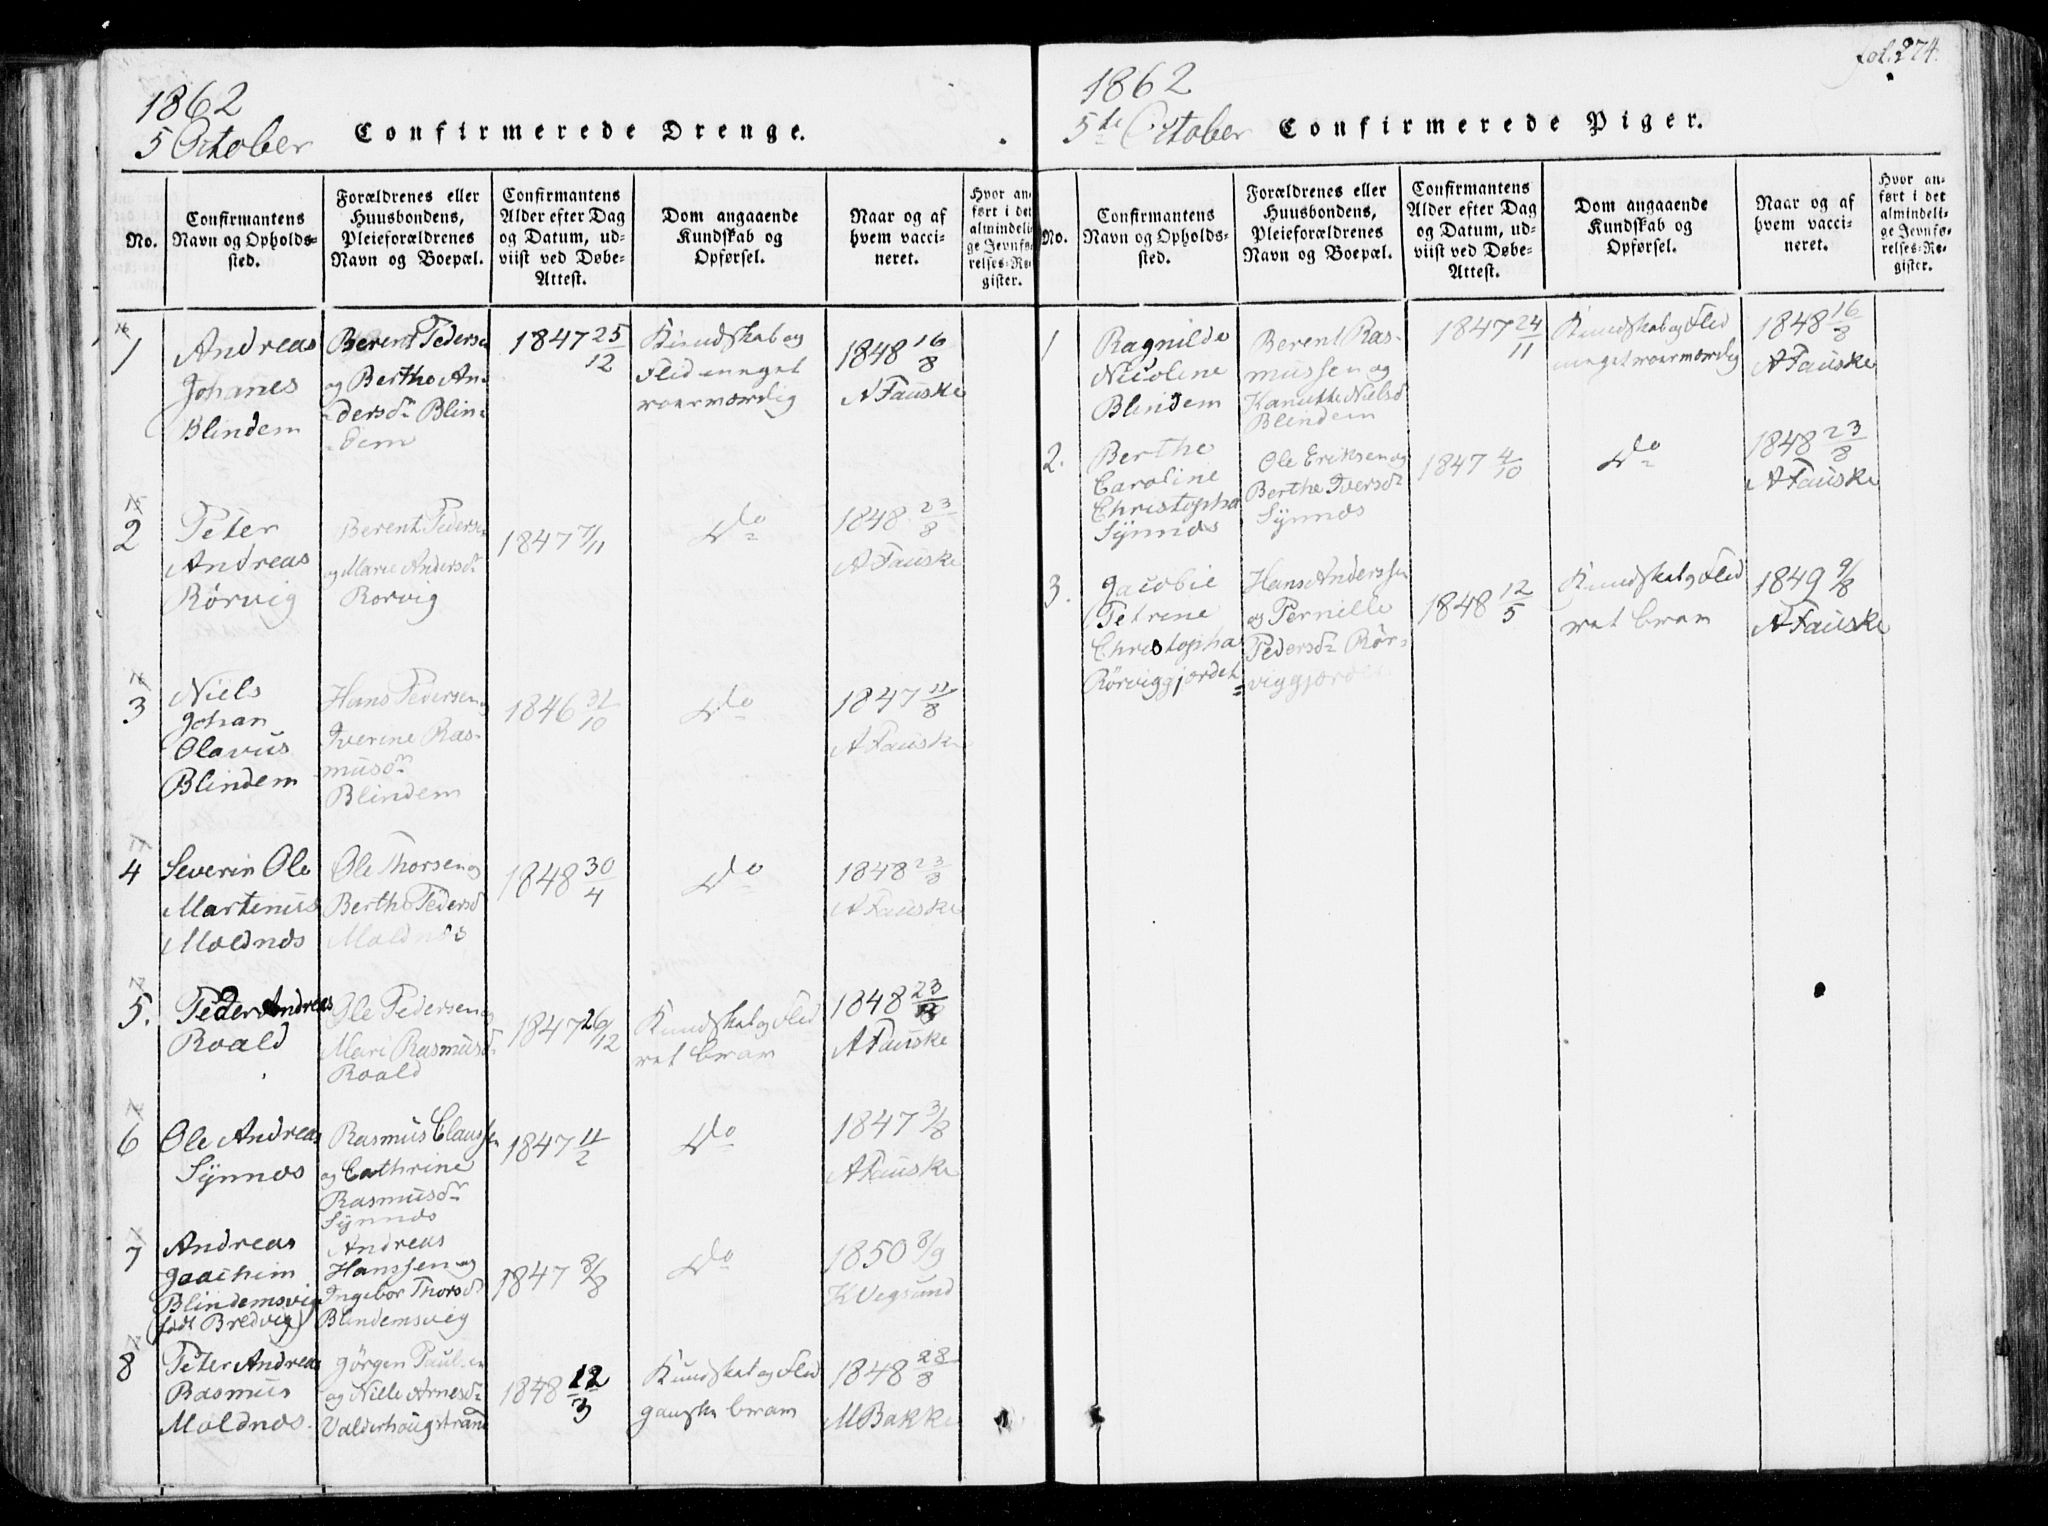 1862
5 October Confirmerede Drenge.
No.
Confirmantens
Navn og Opholds-
sted.
Forældrenes eller
Huusbondens,
Pleieforældrenes
Navn og Boepæl.
Confirmantens
Alder efter Dag
og Datum, ud-
viist ved Døbe-
Attest.
Dom angaaende
Kundskab og
Opførsel.
Naar og af
hvem vacci-
neret.
Hvor an-
ført i det
almindeli-
ge Jevnfø-
relses-Re-
gister.
1
Andreas
Johanes
Blindem
Berent Pedersen
og Berthe An-
dersdr Blin-
dem
1847 25/12
Kundskab og
Flid meget
roesværdig
1848 16/8
A Fauske
2
Peter
Andreas
Rörvig
Berent Peders
og Marie Andersdr
Rorvig
1847 7/11
Do
1848 23/8
A Fauske
3
Niels
Johan
Olavus
Blindem
Hans Pedersen og
Iverine Ras-
musdr
Blindem
1846 31/10
Do
1847 11/8
A Fauske
4
Severin Ole
Martinus
Moldnes
Ole Thorsen og
Berthe Pedersd
Moldnes
1848 30/4
Do
1848 23/8
A Fauske
5.
Peder Andreas
Roald
Ole Pedersen og
Mari Rasmusd
Roald
1847 26/12
Kundskab og Flid
ret brav
1848 23/8
A Fauske
6
Ole Andreas
Synnes
Rasmus Claussen
og Cathrine
Rasmusdr
Synnes
1847 11/2
Do
1847 3/8
A Fauske
7
Andreas
Joachim
Blindemsvig
(født Bredvig)
Andreas
Hanssen og
Ingebor Thorsd
Blindemsvig
1847 8/8
Do
1850 8/9
K Vegsund
8
Peter Andreas
Rasmus
Moldnes.
Jørgen Paulsen
og Nille Arnesdr
Valderhougstrand
1848 12/3
Kundskab og Flid
ganske brav
1848 28/8
M Bakke
fol. 274.
1862
5te October Confirmerede Piger.
No.
Confirmantens
Navn og Opholds-
sted.
Forældrenes eller
Huusbondens,
Pleieforældrenes
Navn og Boepæl.
Confirmantens
Alder efter Dag
og Datum, ud-
viist ved Døbe-
Attest.
Dom angaaende
Kundskab og
Opførsel.
Naar og af
hvem vacci-
neret.
Hvor an-
ført i det
almindeli-
ge Jevnfø-
relses-Re-
gister.
1
Ragnilde
Nicoline
Blindem
Berent Ras-
mussen og
Kanutte Nielsd
Blindem
1847 24/11
Kundskab og Flid
meget roesværdig
1848 16/8
A Fauske
2.
Berthe
Caroline
Christopha
Synnes
Ole Eriksen og
Berthe Iversdr
Synnes
1847 4/10
Do
1848 23/8
A Fauske
3.
Jacobie
Petrine
Christopha
Rörviggjerdet
Hans Anderssen
og Pernille
Pedersdr Rör-
viggjerdet
1848 12/5
Kundskab og Flid
ret brav
1849 9/8
A Fauske